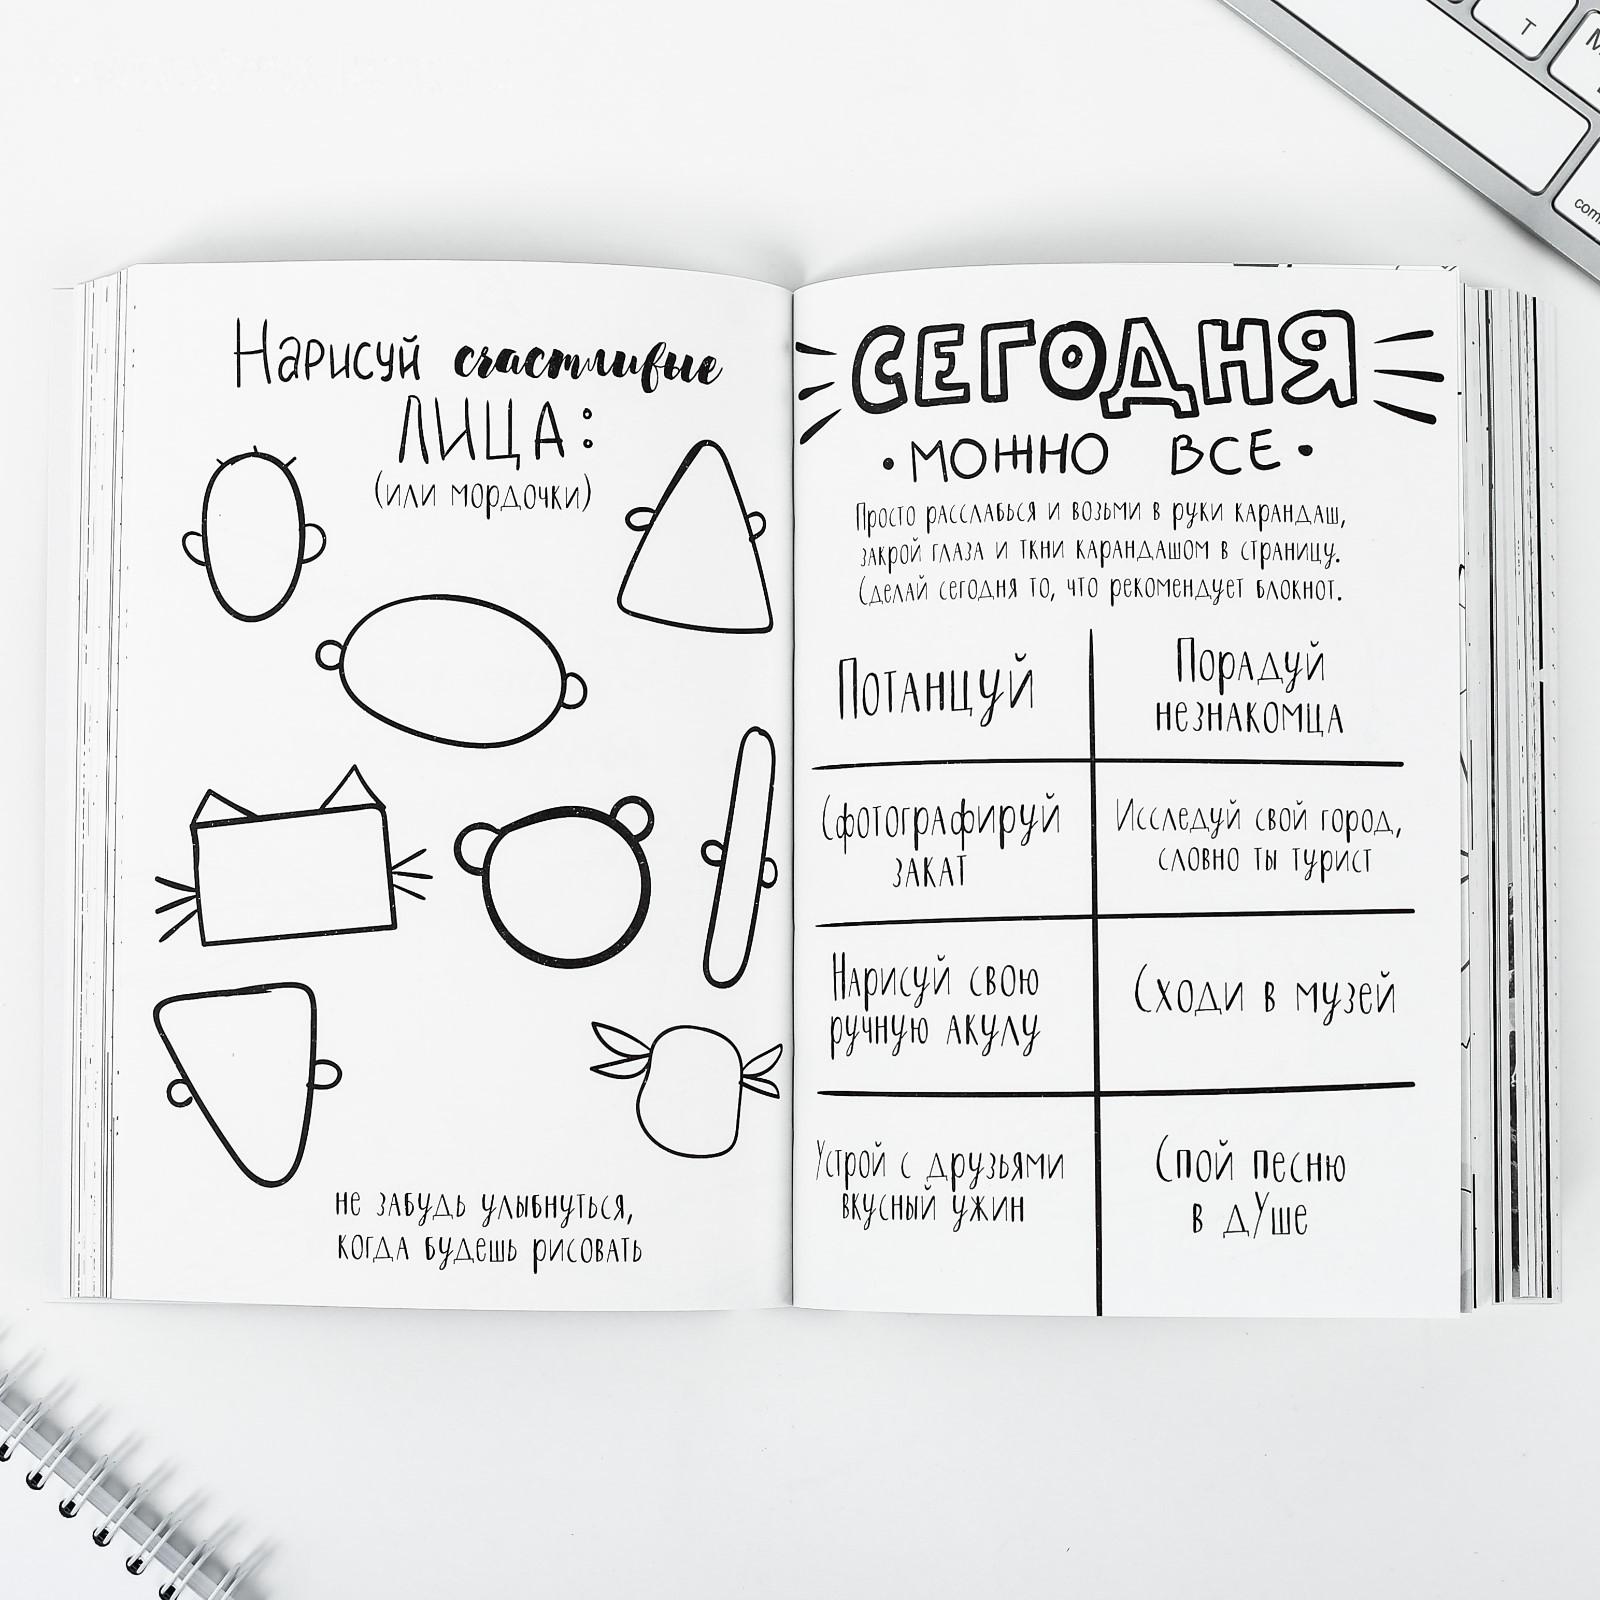 Нарисуй счастливые
ЛИЦА:
(или мордочки)
не забудь улыбнуться,
когда будешь рисовать
СЕГОДНЯ
• МОЖНО ВСЕ •
Просто расслабься и возьми в руки карандаш,
закрой глаза и ткни карандашом в страницу.
Сделай сегодня то, что рекомендует блокнот.
Потанцуй
Порадуй
незнакомца
Сфотографируй
закат
Исследуй свой город,
словно ты турист
Нарисуй свою
ручную акулу
Сходи в музей
Устрой с друзьями
вкусный ужин
Спой песню
в дУше
T